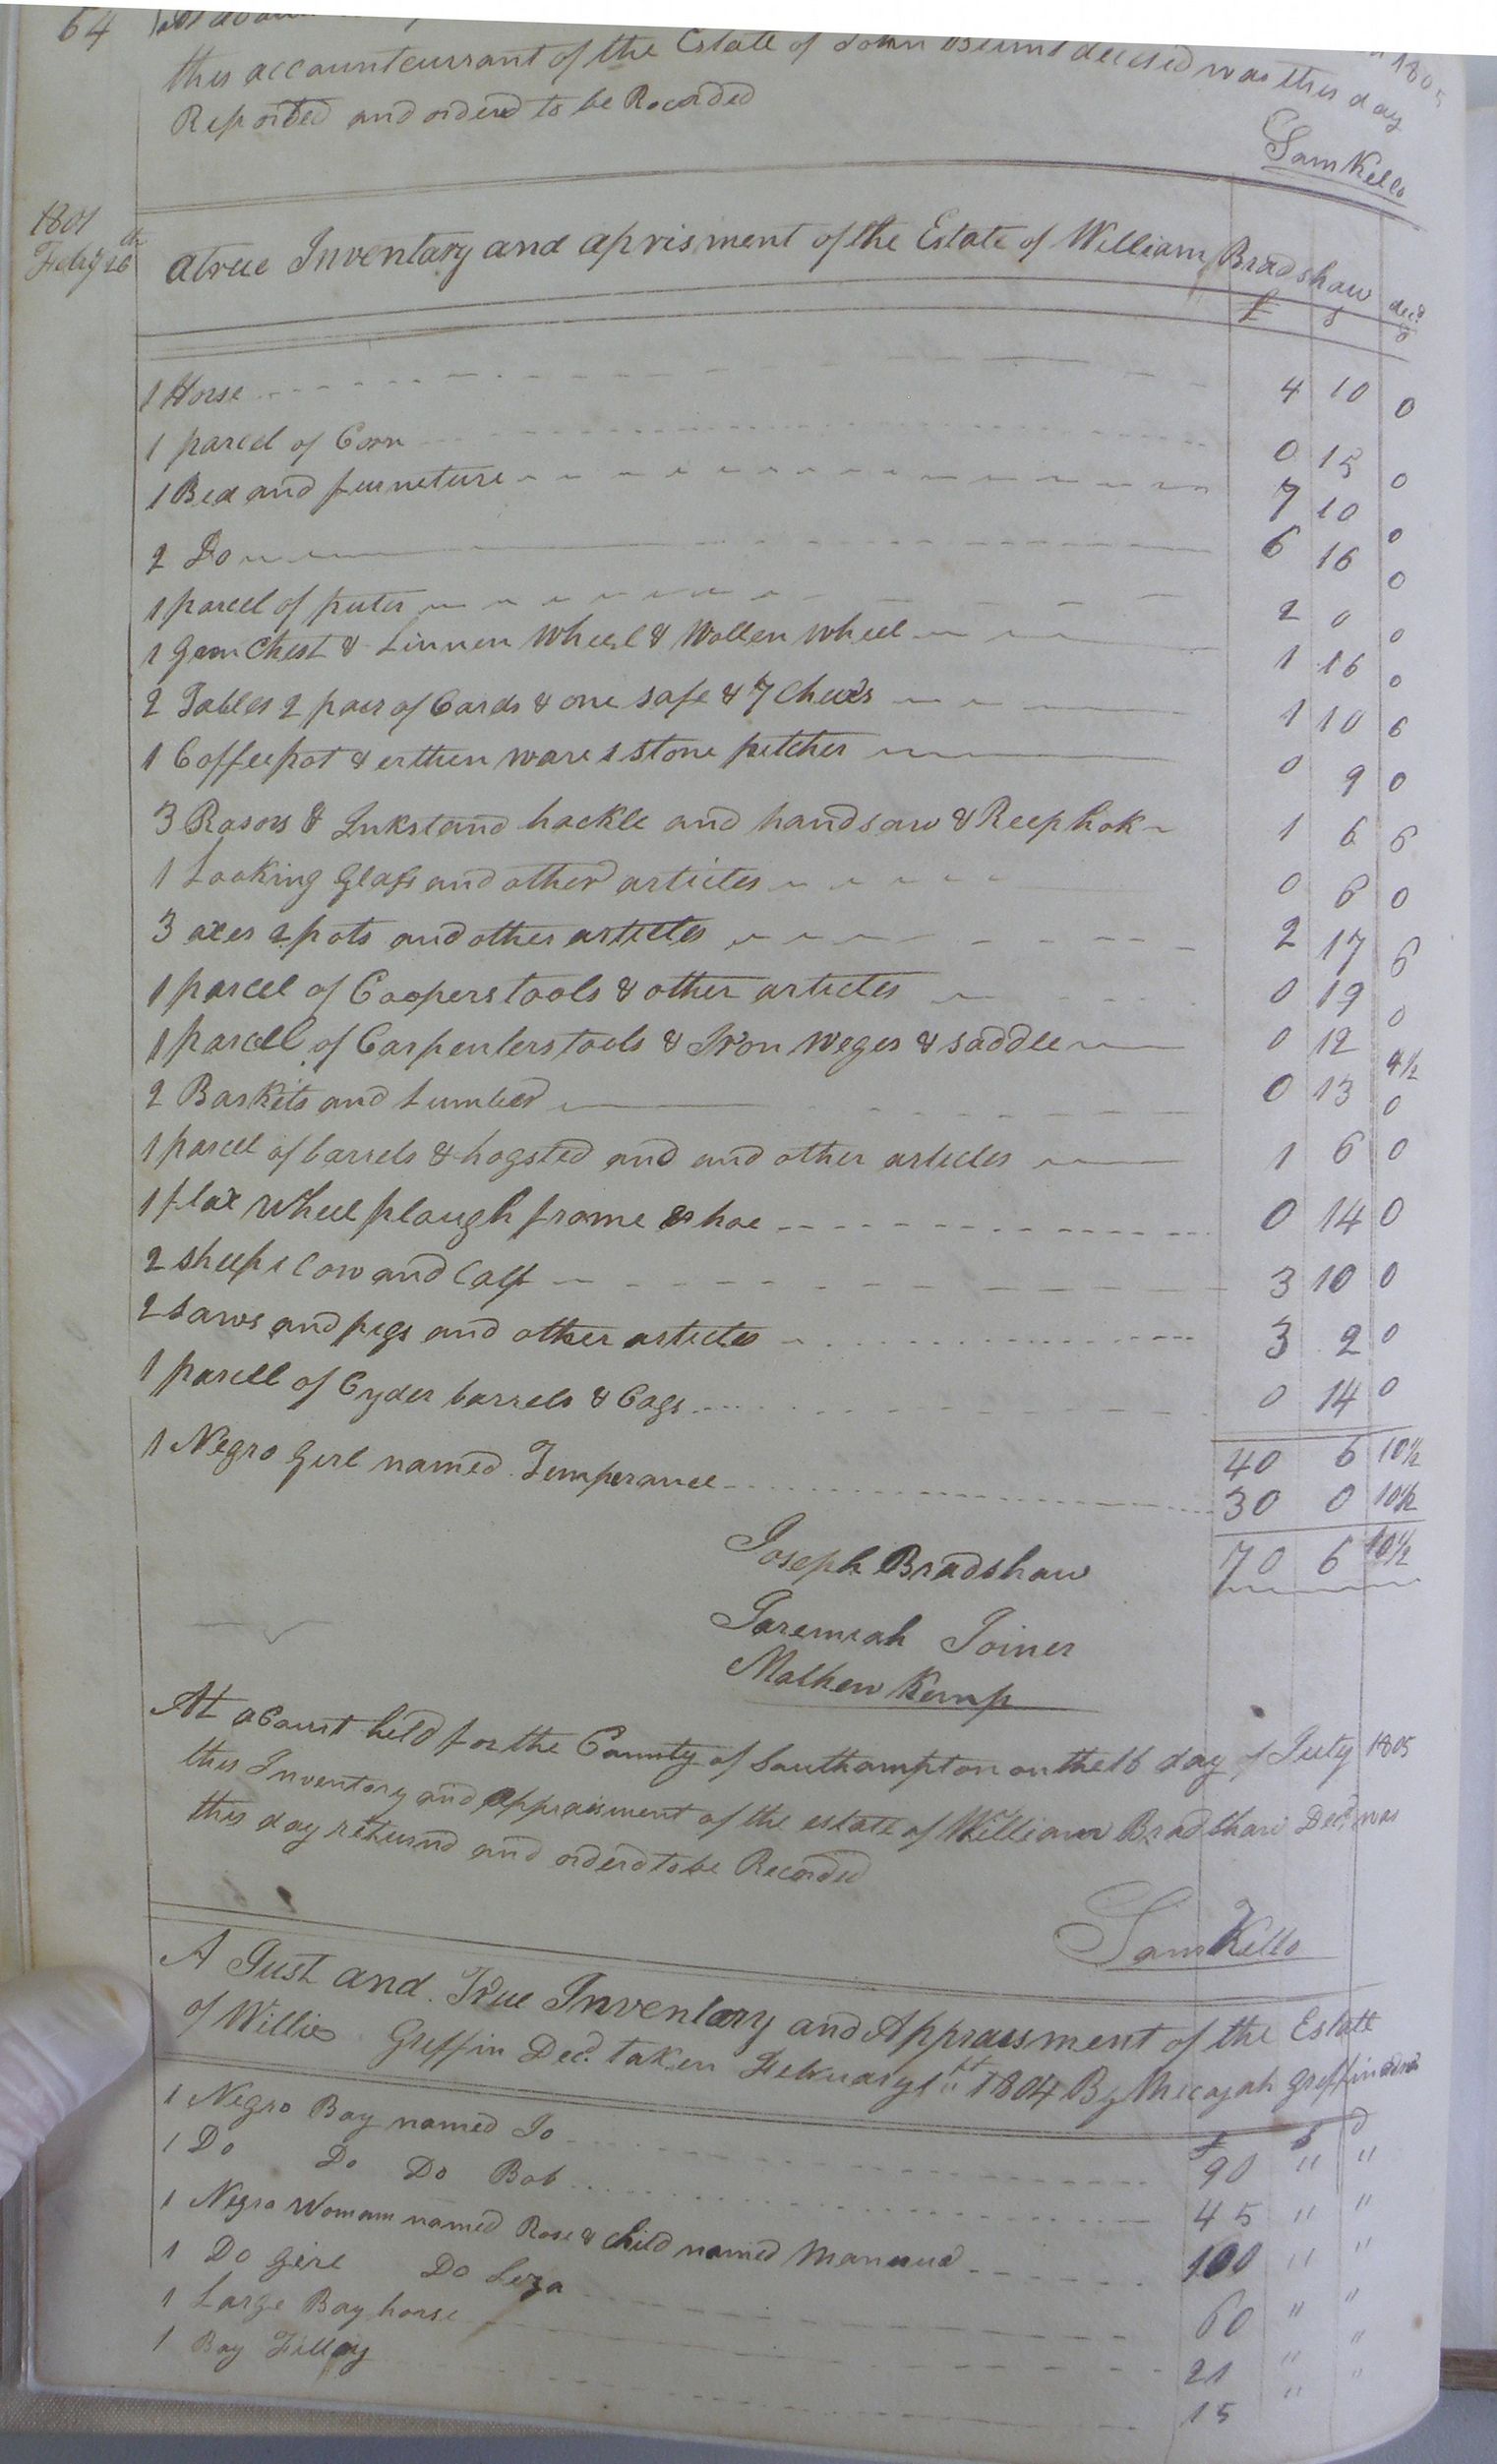 64
this accountcurrant of the Estate of John decsed was this day
Reported and orderd to be Recorded
Sam Kello
1801
Feby 26th
a true Inventary and aprisment of the Estate of William Bradshaw decd
£ s d
1 Horse 4 10 0
1 parcel of Corn 0 15 0
1 Bed and furneture 7 10 0
2 Do 6 16 0
1 parcel of puter 2 0 0
1 Gam Chest & Linnen Wheel & Wollen Wheel 1 16 0
2 Tables 2 pair of Cards & one safe & 7 Cheirs 1 10 6
1 Coffeepot & erthen ware 1 stone pitcher 0 9 0
3 Rasors & Inkstand hackle and handsaw & Reep hok 1 6 6
1 Looking Glass and other articles 0 6 0
3 axes 2 pots and other articles 2 17 6
1 parcel of Coopers tools & other articles 0 19 0
1 parcell of Carpenters tools & Iron weges & saddle 0 12 4½
2 Baskits and Lumber 0 13 0
1 parcel of barrels & hogsted and and other articles 1 6 0
1 flax wheel plough frame & hoe 0 14 0
2 sheep 1 Cow and Calf 3 10 0
2 saws and pigs and other articles 3 2 0
1 parcell of Cyder barrels & Cags 0 14 0
40 6 10½
1 Negro Girl named Temperance 30 0 10½
70 6 10½
Joseph Bradshaw
Jaremiah Joiner
Mathew Kemp
At a Court held for the County of Southampton on the 16 day of July 1805
this Inventory and appraisment of the estate of William Bradshaw Decd was
this day returnd and orderd to be Recorded
Sam Kello
A Just and True Inventory and Appraisment of the Estate
of Willie Griffin Decd. taken February 1st 1804 By Micajah Griffin
£ s d
1 Negro Boy named Jo 90 " "
1 Do Do Do Bob 45 " "
1 Negro Woman named Rose & Child named 100 " "
1 Do girl Do Liza 60 " "
1 Large Bay horse 21 " "
1 Bay Filley 15 " "